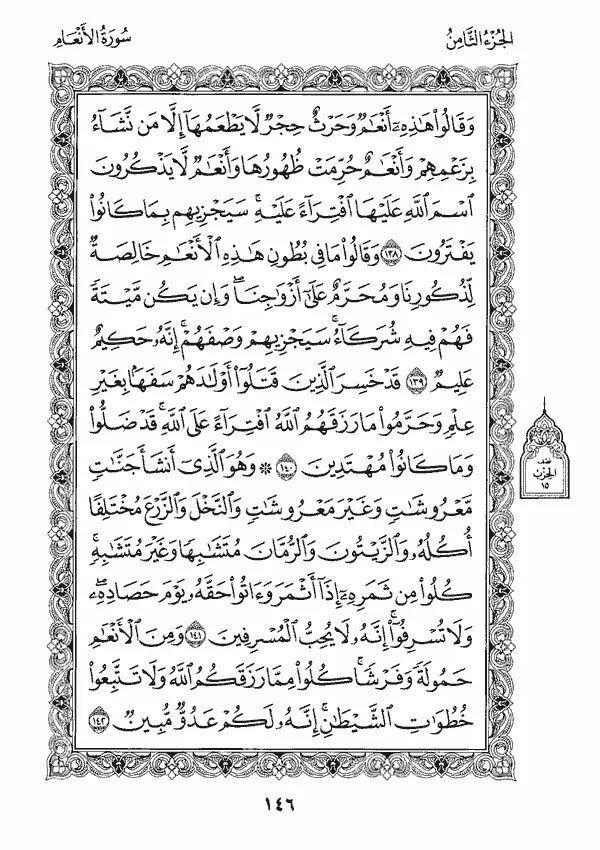 الجُزْءُ الثَّامِنُ
سُورَةُ الأَنْعَامِ
وَقَالُواْ هَٰذِهِۦٓ أَنْعَٰمٌ وَحَرْثٌ حِجْرٌ لَّا يَطْعَمُهَآ إِلَّا مَن نَّشَآءُ
بِزَعْمِهِمْ وَأَنْعَٰمٌ حُرِّمَتْ ظُهُورُهَا وَأَنْعَٰمٌ لَّا يَذْكُرُونَ
ٱسْمَ ٱللَّهِ عَلَيْهَا ٱفْتِرَآءً عَلَيْهِ ۚ سَيَجْزِيهِم بِمَا كَانُواْ
يَفْتَرُونَ ١٣٨ وَقَالُواْ مَا فِى بُطُونِ هَٰذِهِ ٱلْأَنْعَٰمِ خَالِصَةٌ
لِّذُكُورِنَا وَمُحَرَّمٌ عَلَىٰٓ أَزْوَٰجِنَا ۖ وَإِن يَكُن مَّيْتَةً
فَهُمْ فِيهِ شُرَكَآءُ ۚ سَيَجْزِيهِمْ وَصْفَهُمْ ۚ إِنَّهُۥ حَكِيمٌ
عَلِيمٌ ١٣٩ قَدْ خَسِرَ ٱلَّذِينَ قَتَلُوٓاْ أَوْلَٰدَهُمْ سَفَهًۢا بِغَيْرِ
عِلْمٍ وَحَرَّمُواْ مَا رَزَقَهُمُ ٱللَّهُ ٱفْتِرَآءً عَلَى ٱللَّهِ ۚ قَدْ ضَلُّواْ
وَمَا كَانُواْ مُهْتَدِينَ ١٤٠ ۞ وَهُوَ ٱلَّذِىٓ أَنشَأَ جَنَّٰتٍ
مَّعْرُوشَٰتٍ وَغَيْرَ مَعْرُوشَٰتٍ وَٱلنَّخْلَ وَٱلزَّرْعَ مُخْتَلِفًا
أُكُلُهُۥ وَٱلزَّيْتُونَ وَٱلرُّمَّانَ مُتَشَٰبِهًا وَغَيْرَ مُتَشَٰبِهٍ ۚ
كُلُواْ مِن ثَمَرِهِۦٓ إِذَآ أَثْمَرَ وَءَاتُواْ حَقَّهُۥ يَوْمَ حَصَادِهِۦ ۖ
وَلَا تُسْرِفُوٓاْ ۚ إِنَّهُۥ لَا يُحِبُّ ٱلْمُسْرِفِينَ ١٤١ وَمِنَ ٱلْأَنْعَٰمِ
حَمُولَةً وَفَرْشًا ۚ كُلُواْ مِمَّا رَزَقَكُمُ ٱللَّهُ وَلَا تَتَّبِعُواْ
خُطُوَٰتِ ٱلشَّيْطَٰنِ ۚ إِنَّهُۥ لَكُمْ عَدُوٌّ مُّبِينٌ ١٤٢
نصف
الحزب
١٥
١٤٦